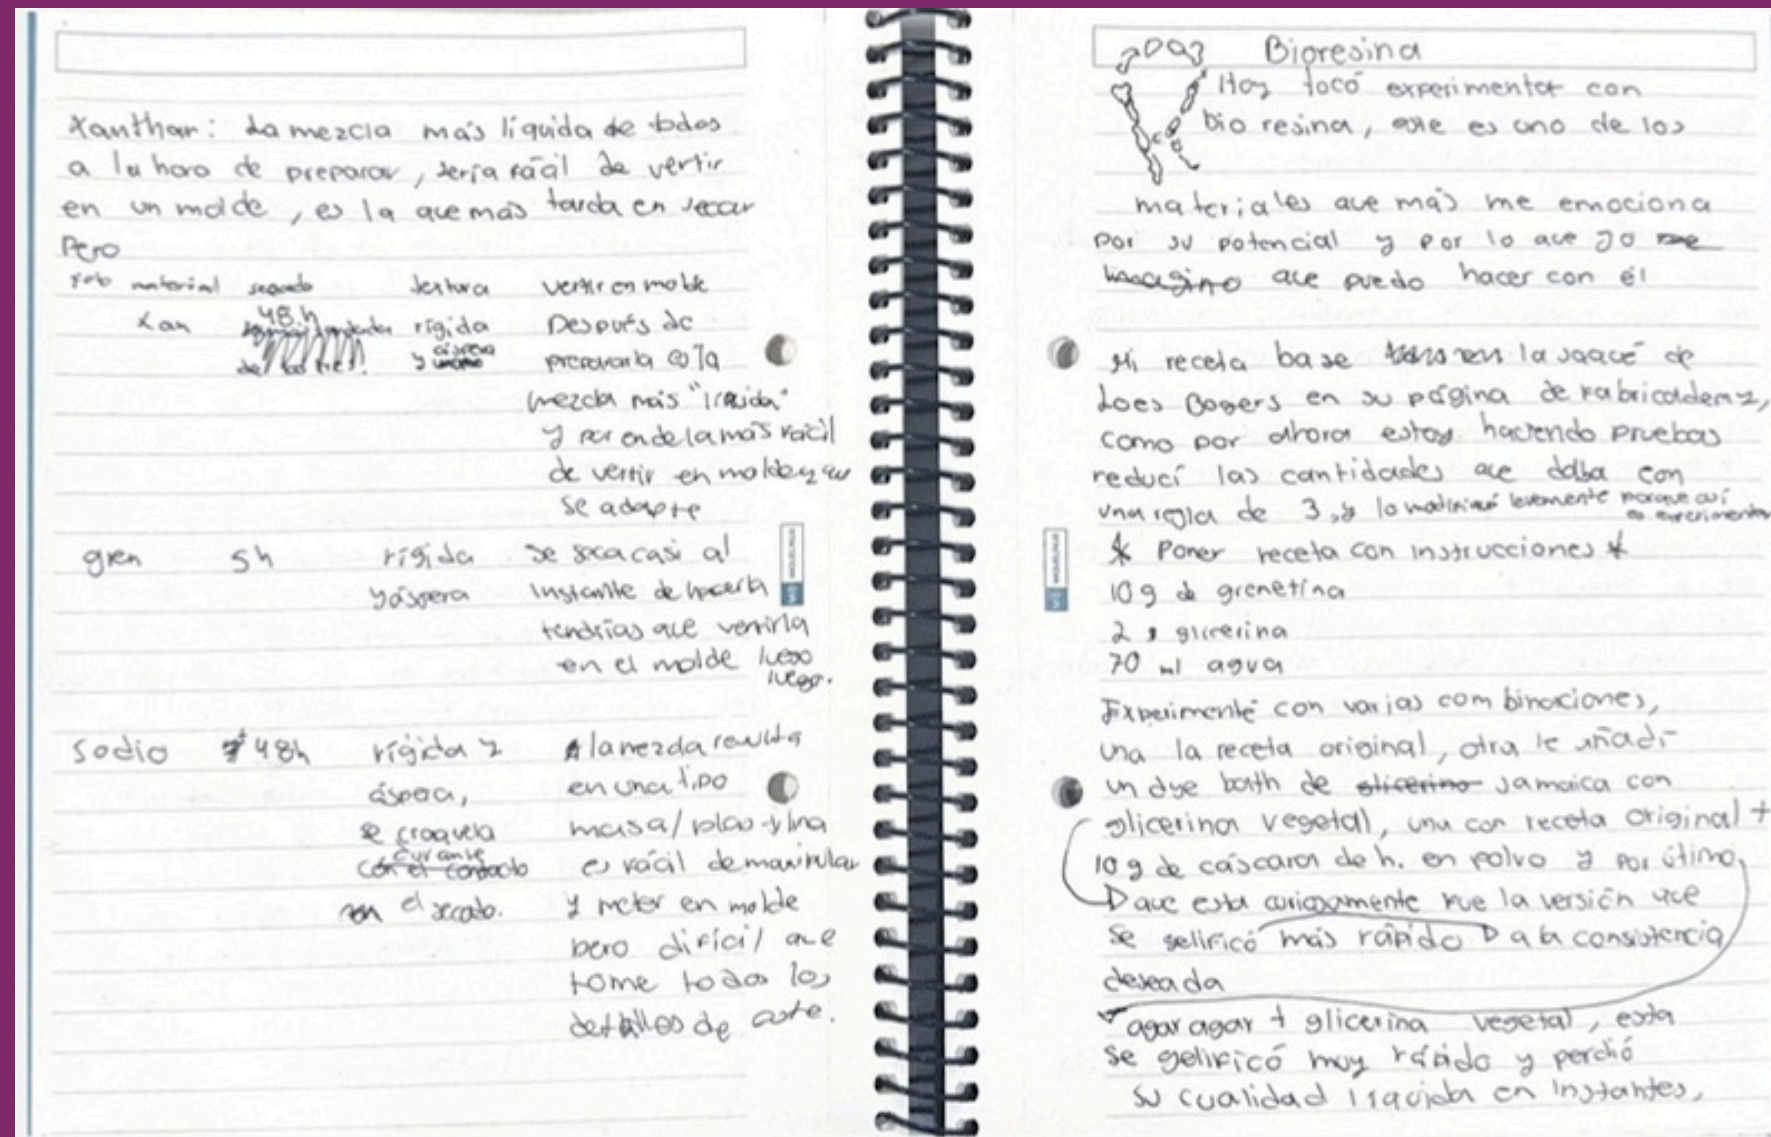 Xanthan: La mezcla más líquida de todas
a la hora de preparar, sería fácil de vertir
en un molde, es la que más tarda en secar
Pero
material secado textura vertir en molde
Xan 48 h rígida Después de
y áspera prepararla es la
mezcla más "líquida"
y por ende la más fácil
de vertir en molde y que
se adapte
gren 5h rígida se seca casi al
y áspera instante de hacerla
tendrías que vertirla
en el molde luego
luego.
Sodio 48h rígida y la mezcla resulta
áspera, en una tipo
se craquela masa/plastilina
durante es fácil de manipular
el secado. y meter en molde
pero difícil que
tome todos los
detalles de este.
Bioresina
Hoy tocó experimentar con
bio resina, este es uno de los
materiales que más me emociona
por su potencial y por lo que yo me
imagino que puedo hacer con él
Mi receta base la saqué de
Loes Bogers en su página de Fabricademy,
como por ahora estoy haciendo pruebas
reducí las cantidades que daba con
una regla de 3, y lo modifiqué levemente porque así
es experimentar
* Poner receta con instrucciones *
10 g de grenetina
2 glicerina
70 ml agua
Experimenté con varias combinaciones,
una la receta original, otra le añadí
un dye bath de glicerina Jamaica con
glicerina vegetal, una con receta original +
10 g de cáscara de h. en polvo y por útimo,
que esta curiosamente fue la versión que
se gelificó más rápido a la consistencia
deseada
agar agar + glicerina vegetal, esta
se gelificó muy rápido y perdió
su cualidad líquida en instantes,